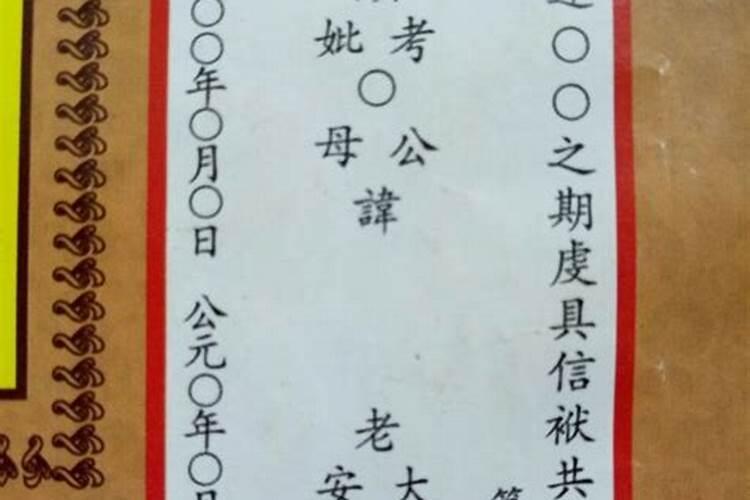 ○○之期虔具信袱共
考妣○公母諱 老大安
○○年○月○日 公元○年○